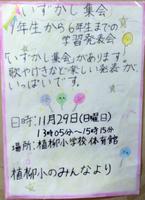 いずかし集会
1年生から6年生までの
学習発表会
「いずかし集会」があります。
歌やげきなど楽しい発表が、
いっぱいです。
日時:11月29日(日曜日)
13時05分〜15時15分
場所:植柳小学校 体育館
植柳小のみんなより